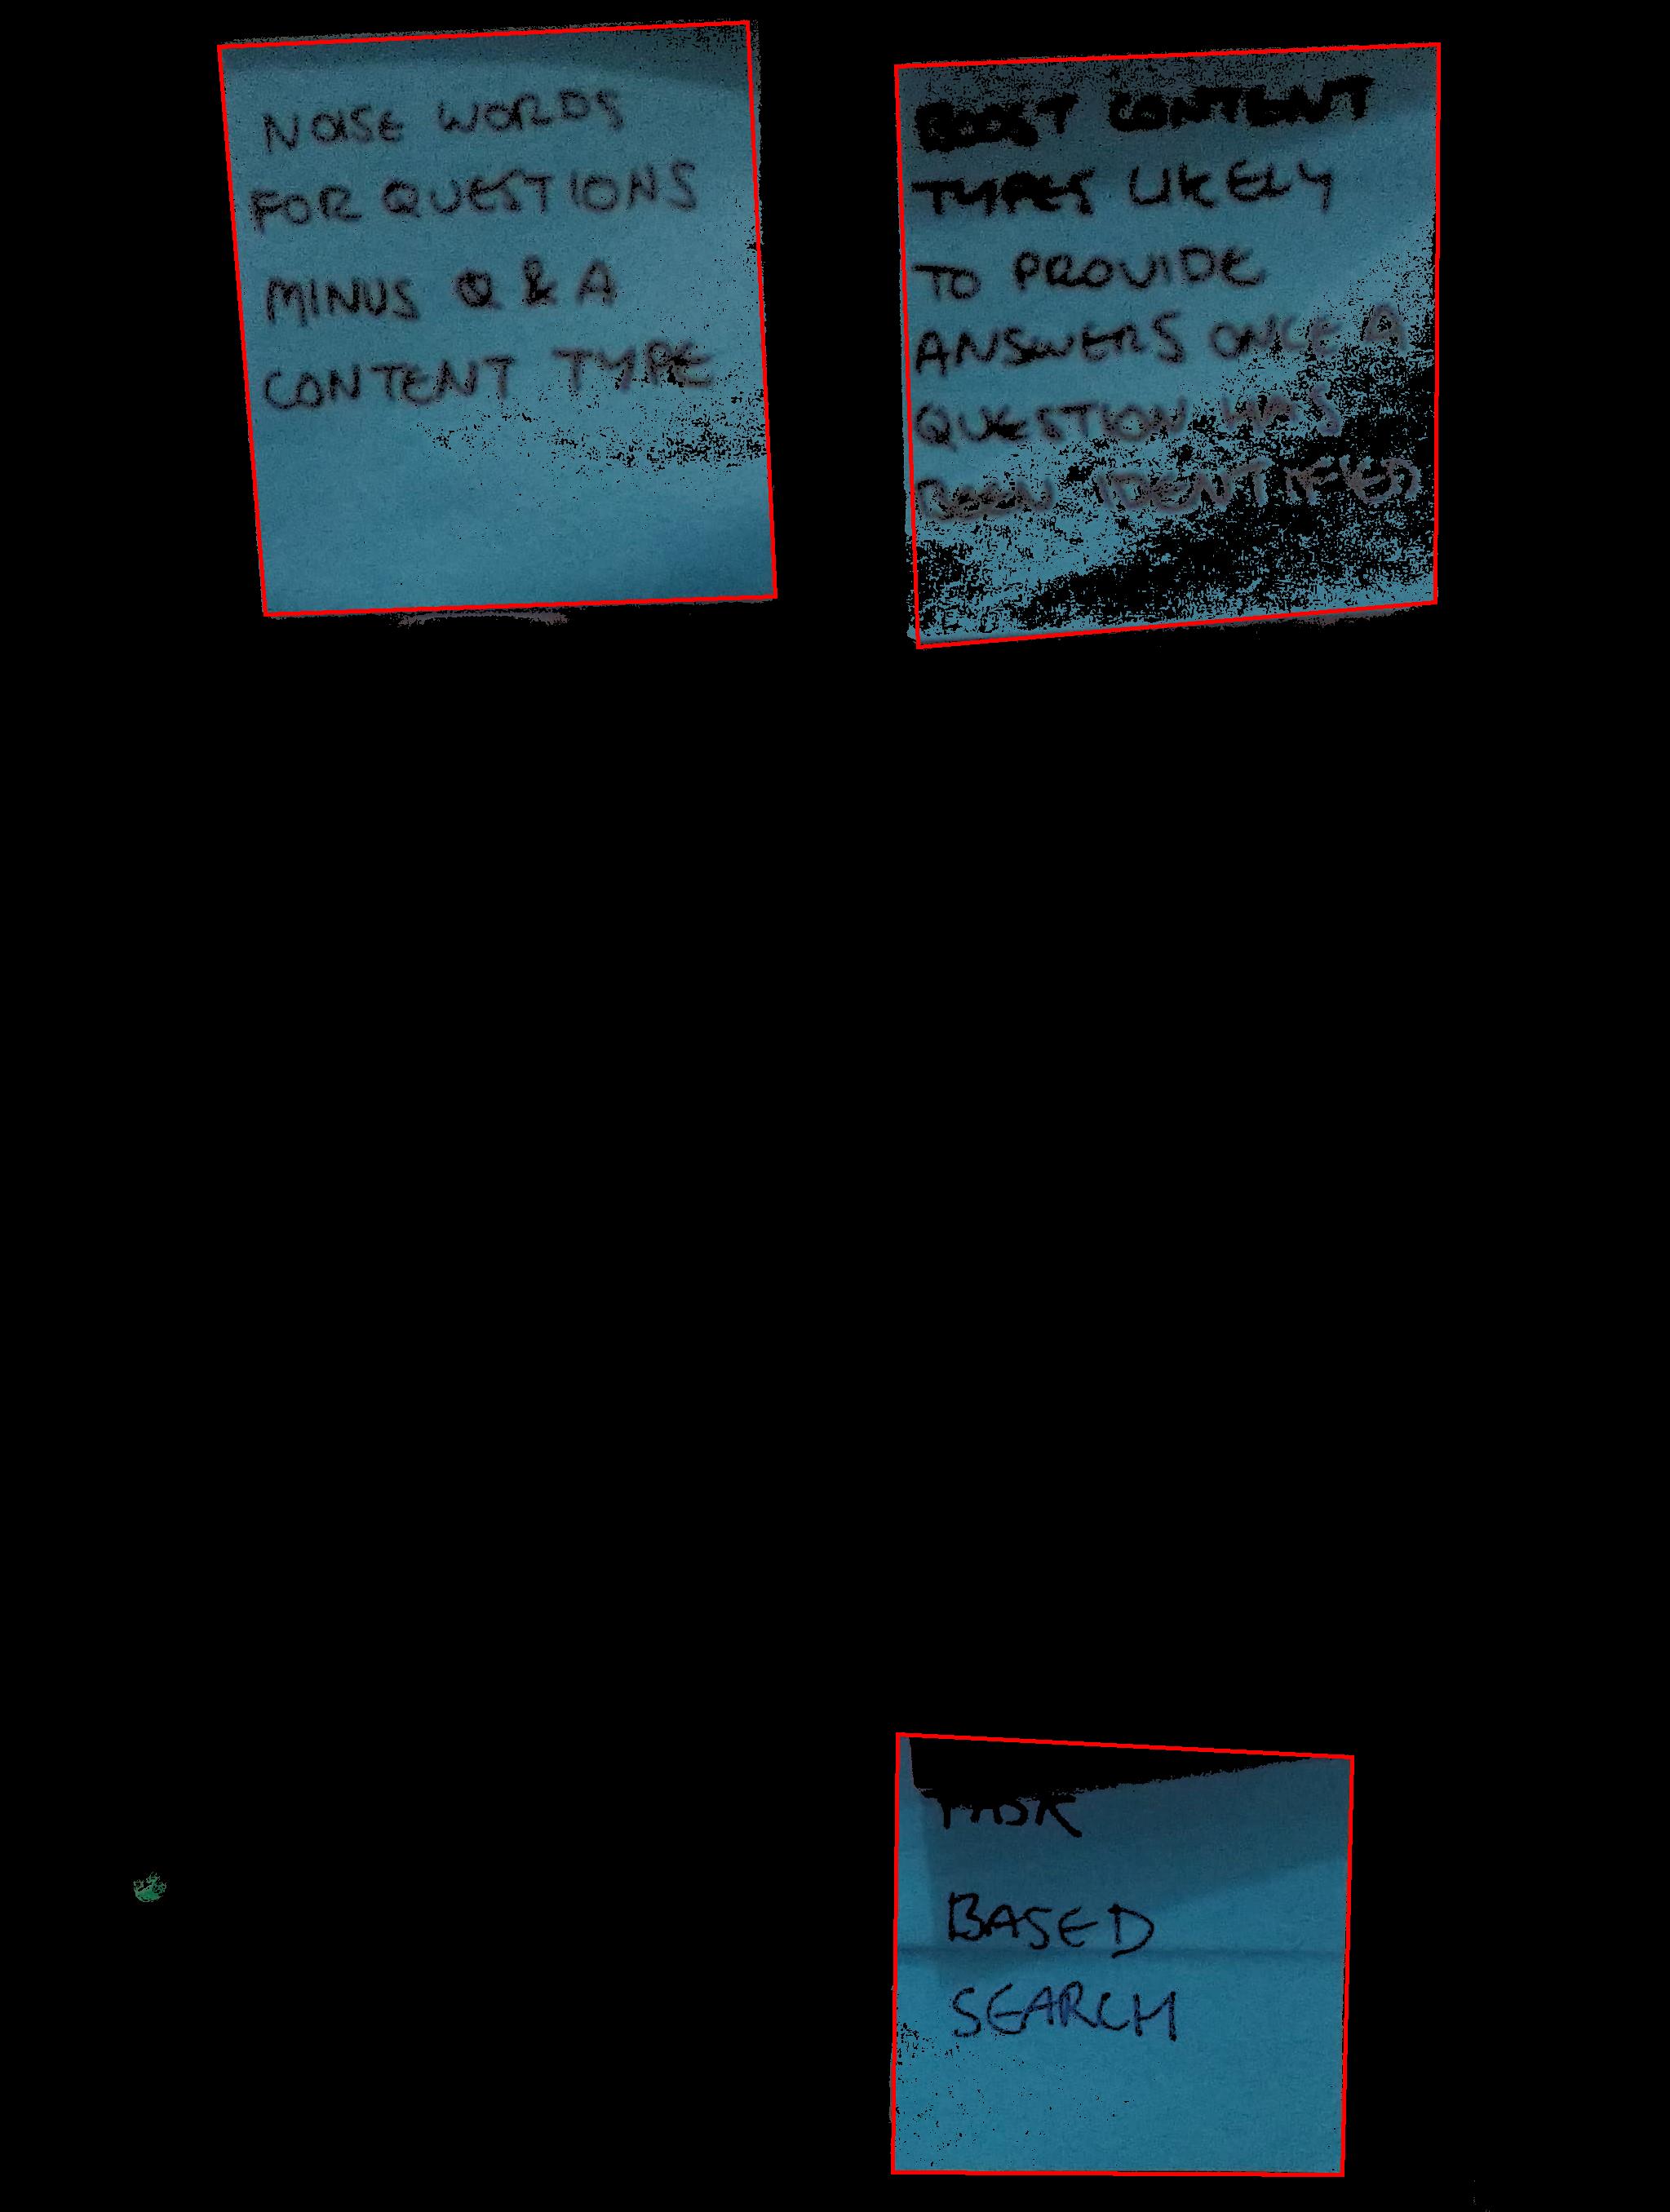 NOISE WORDS
FOR QUESTIONS
MINUS Q & A
CONTENT TYPE
BOOST CONTENT
TYPES LIKELY
TO PROVIDE
ANSWERS ONCE A
QUESTION HAS
BEEN IDENTIFIED
TASK
BASED
SEARCH